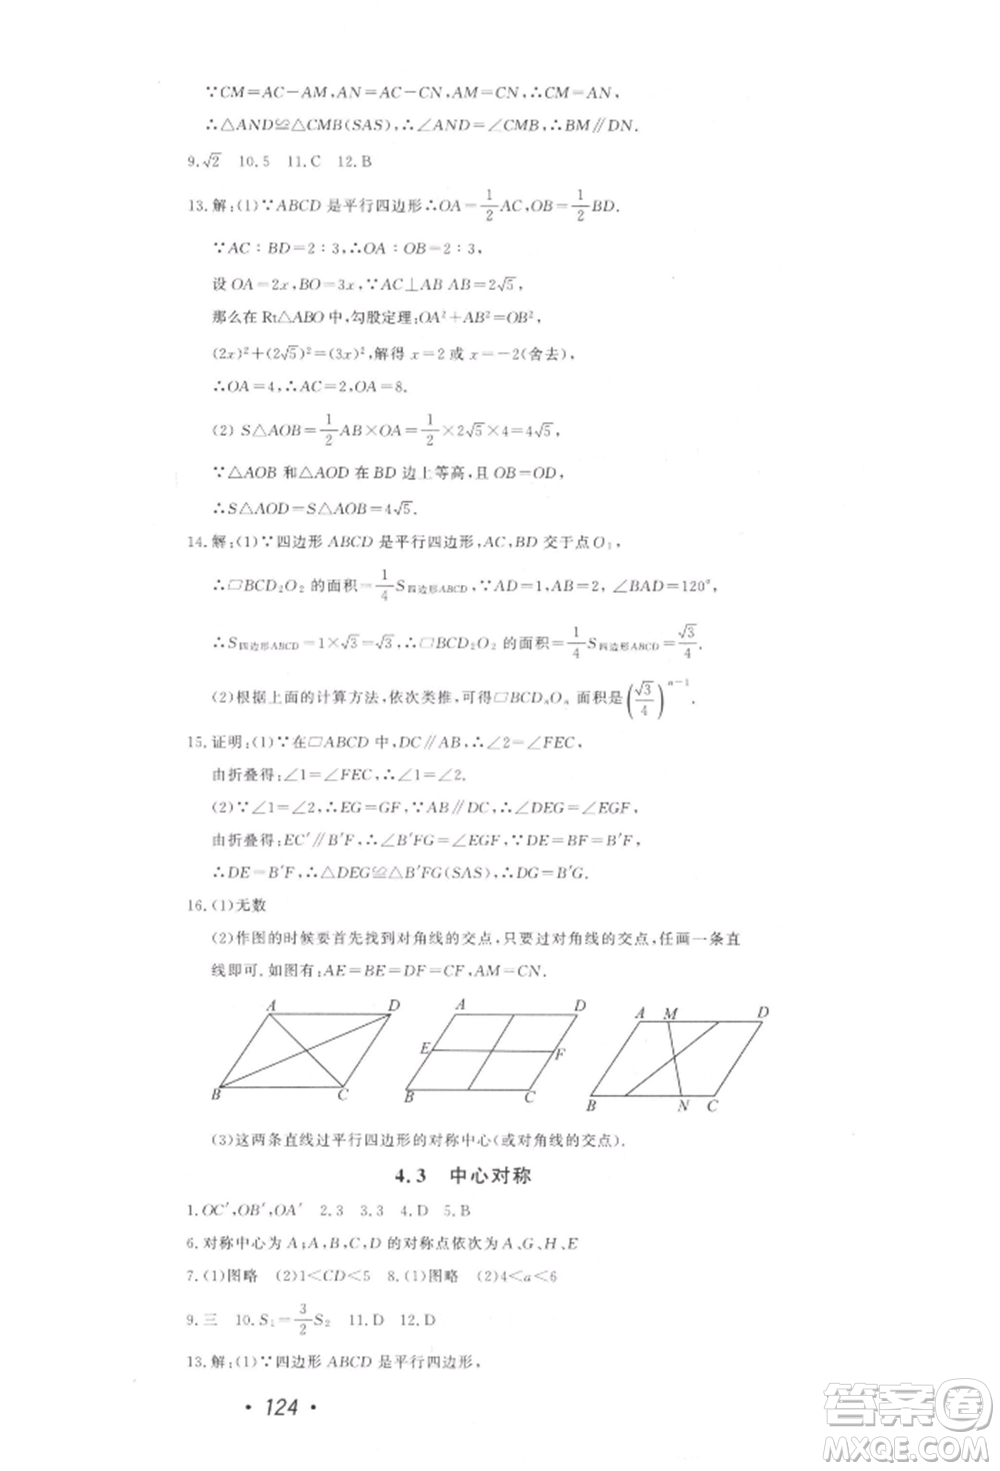 ∵CM=AC-AM,AN=AC-CN,AM=CN,∴CM=AN,
∴△AND≌△CMB(SAS),∴∠AND=∠CMB,∴BM∥DN.
9.√2 10.5 11.C 12.B
13.解:(1)∵ABCD是平行四边形∴OA=1/2AC,OB=1/2BD.
∵AC∶BD=2∶3,∴OA∶OB=2∶3,
设OA=2x,BO=3x,∵AC⊥AB AB=2√5,
那么在Rt△ABO中,勾股定理:OA²+AB²=OB²,
(2x)²+(2√5)²=(3x)²,解得x=2或x=-2(舍去),
∴OA=4,∴AC=2,OA=8.
(2) S△AOB=1/2AB×OA=1/2×2√5×4=4√5,
∵△AOB和△AOD在BD边上等高,且OB=OD,
∴S△AOD=S△AOB=4√5.
14.解:(1)∵四边形ABCD是平行四边形,AC,BD交于点O₁,
∴▱BCD₂O₂的面积=1/4S四边形ABCD,∵AD=1,AB=2,∠BAD=120°,
∴S四边形ABCD=1×√3=√3,∴▱BCD₂O₂的面积=1/4S四边形ABCD=√3/4.
(2)根据上面的计算方法,依次类推,可得▱BCDₙOₙ面积是(√3/4)ⁿ⁻¹.
15.证明:(1)∵在▱ABCD中,DC∥AB,∴∠2=∠FEC,
由折叠得:∠1=∠FEC,∴∠1=∠2.
(2)∵∠1=∠2,∴EG=GF,∵AB∥DC,∴∠DEG=∠EGF,
由折叠得:EC′∥B′F,∴∠B′FG=∠EGF,∵DE=BF=B′F,
∴DE=B′F,∴△DEG≌△B′FG(SAS),∴DG=B′G.
16.(1)无数
(2)作图的时候要首先找到对角线的交点,只要过对角线的交点,任画一条直
线即可.如图有:AE=BE=DF=CF,AM=CN.
A D B C
A D E F B C
A M D B N C
(3)这两条直线过平行四边形的对称中心(或对角线的交点).
4.3 中心对称
1.OC′,OB′,OA′ 2.3 3.3 4.D 5.B
6.对称中心为A;A,B,C,D的对称点依次为A、G、H、E
7.(1)图略 (2)1<CD<5 8.(1)图略 (2)4<a<6
9.三 10.S₁=3/2S₂ 11.D 12.D
13.解:(1)∵四边形ABCD是平行四边形,
· 124 ·
答案圈
MXQE.COM